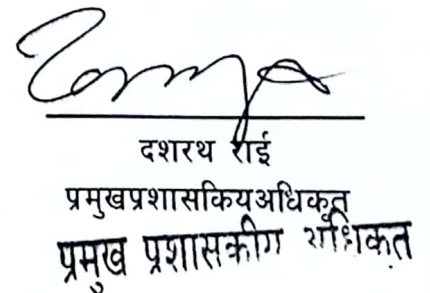 दशरथ राई
प्रमुखप्रशासकियअधिकृत
प्रमुख प्रशासकीय अधिकृत